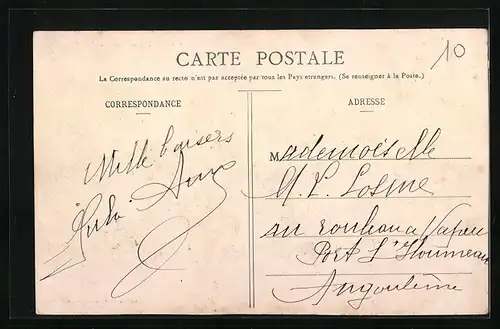 10
CARTE POSTALE
La Correspondance au recto n'est pas acceptée par tous les Pays etrangers. (Se renseigner à la Poste.)
CORRESPONDANCE
ADRESSE
Mille baisers
Mademoiselle
M. L. Losme
au rouleau a Vapeur
Port L'Houmeau
Angoulême